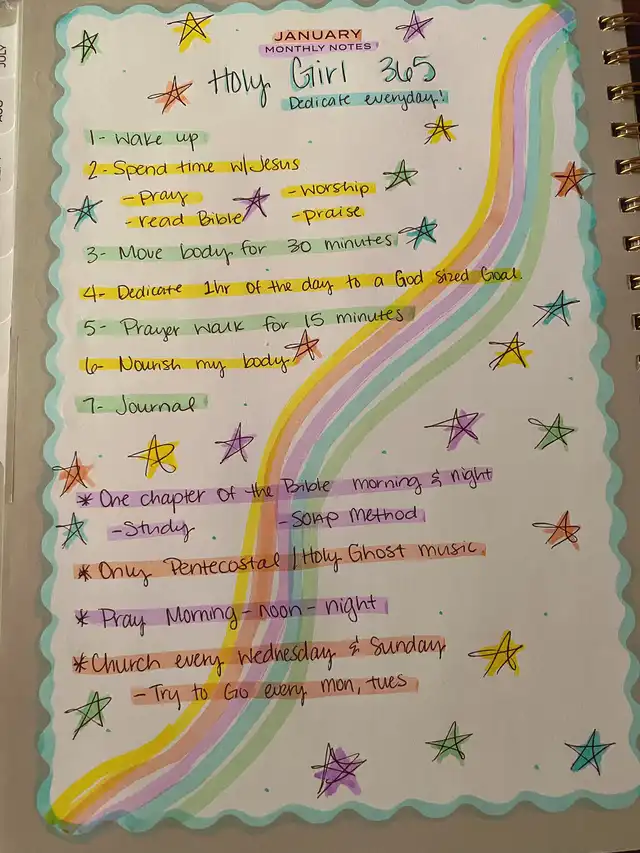 JULY
AUG
JANUARY
MONTHLY NOTES
Holy Girl 365
Dedicate everyday!
1- Wake up
2- Spend time w/Jesus
- Pray - Worship
- read Bible - praise
3- Move body for 30 minutes
4- Dedicate 1hr of the day to a God Sized Goal.
5- Prayer walk for 15 minutes
6- Nourish my body
7- Journal
* One chapter of the Bible morning & night
- Study - SOAP Method
* Only Pentecostal / Holy Ghost music
* Pray Morning - noon - night
* Church every Wednesday & Sunday
- Try to Go every mon, tues